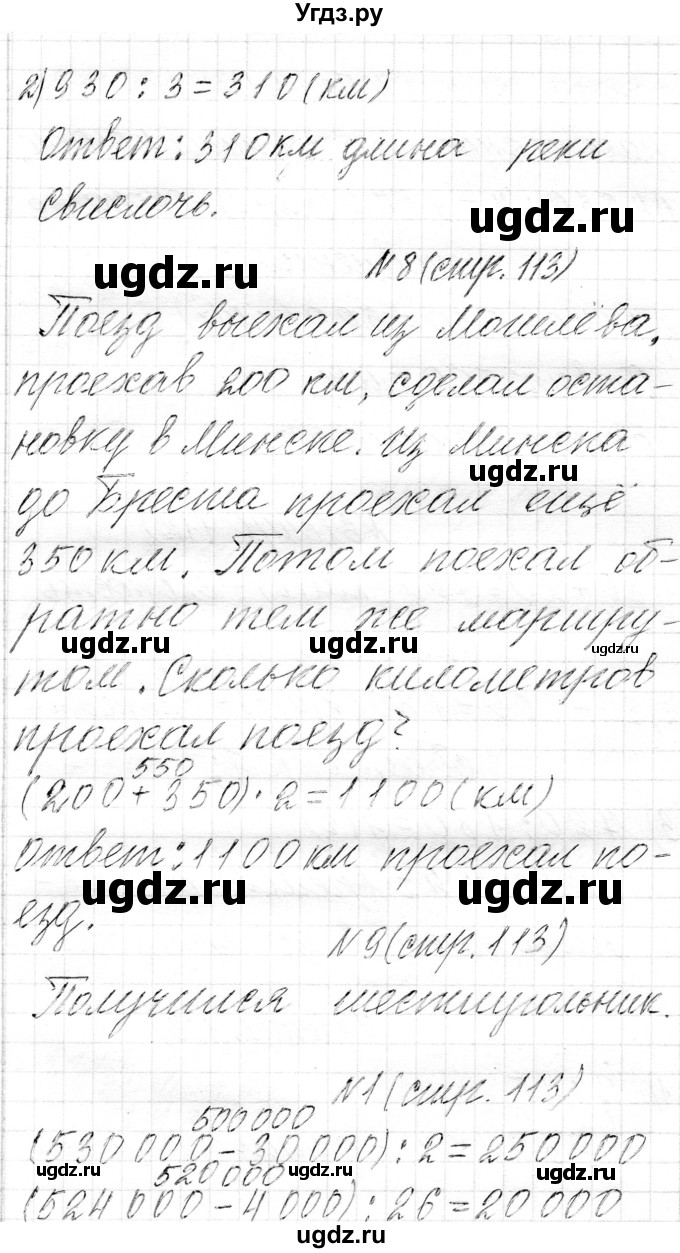 Угдз.ру
2) 930 : 3 = 310 (км)
Ответ: 310 км длина реки
Свислочь.
ugdz.ru
ugdz.ru
№ 8 (стр. 113)
Поезд выехал из Могилёва,
проехав 200 км, сделал оста-
новку в Минске. Из Минска
ugdz.ru
до Бреста проехал ещё
350 км. Потом поехал об-
ратно тем же маршру-
ugdz.ru ugdz.ru ugdz.ru
том. Сколько километров
проехал поезд?
550
(200 + 350) · 2 = 1100 (км)
Ответ: 1100 км проехал по-
ugdz.ru ugdz.ru
езд.
№ 9 (стр. 113)
Получился шестиугольник.
№ 1 (стр. 113)
500 000
(530 000 - 30 000) : 2 = 250 000
ugdz.ru ugdz.ru
520 000
(524 000 - 4 000) : 26 = 20 000
ugdz.ru